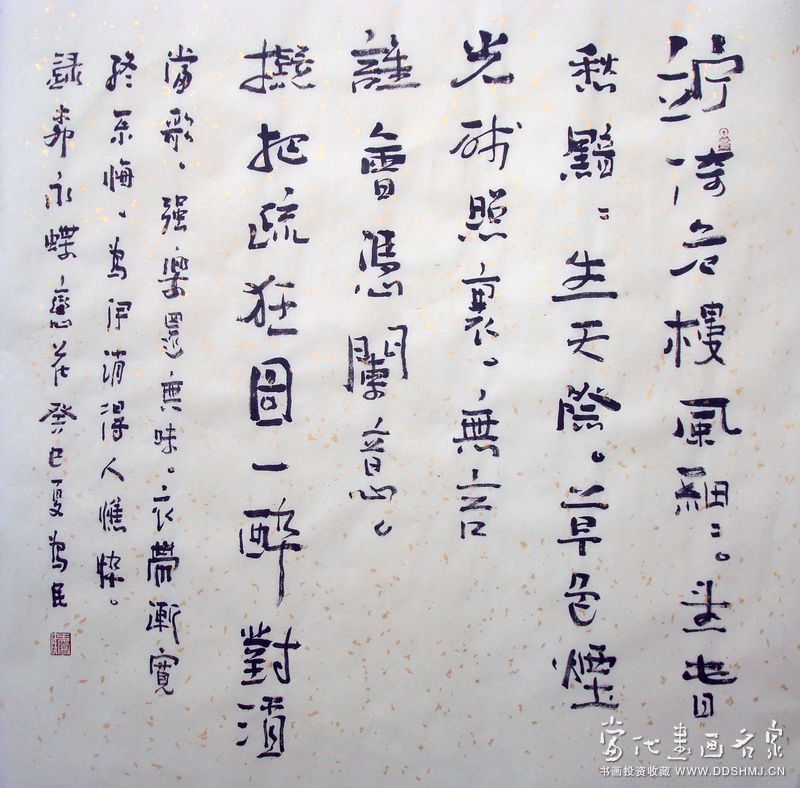 竚倚危樓風細〻。望春
愁黯〻生天際。草色煙
光殘照裏。無言
誰會憑闌意。
擬把疏狂圖一醉對酒
當歌、强樂還無味。衣帶漸寬
終不悔。為伊消得人憔悴。
錄柳永蝶戀花癸巳夏為民
當代書畫名家
书画投资收藏 WWW.DDSHMJ.CN